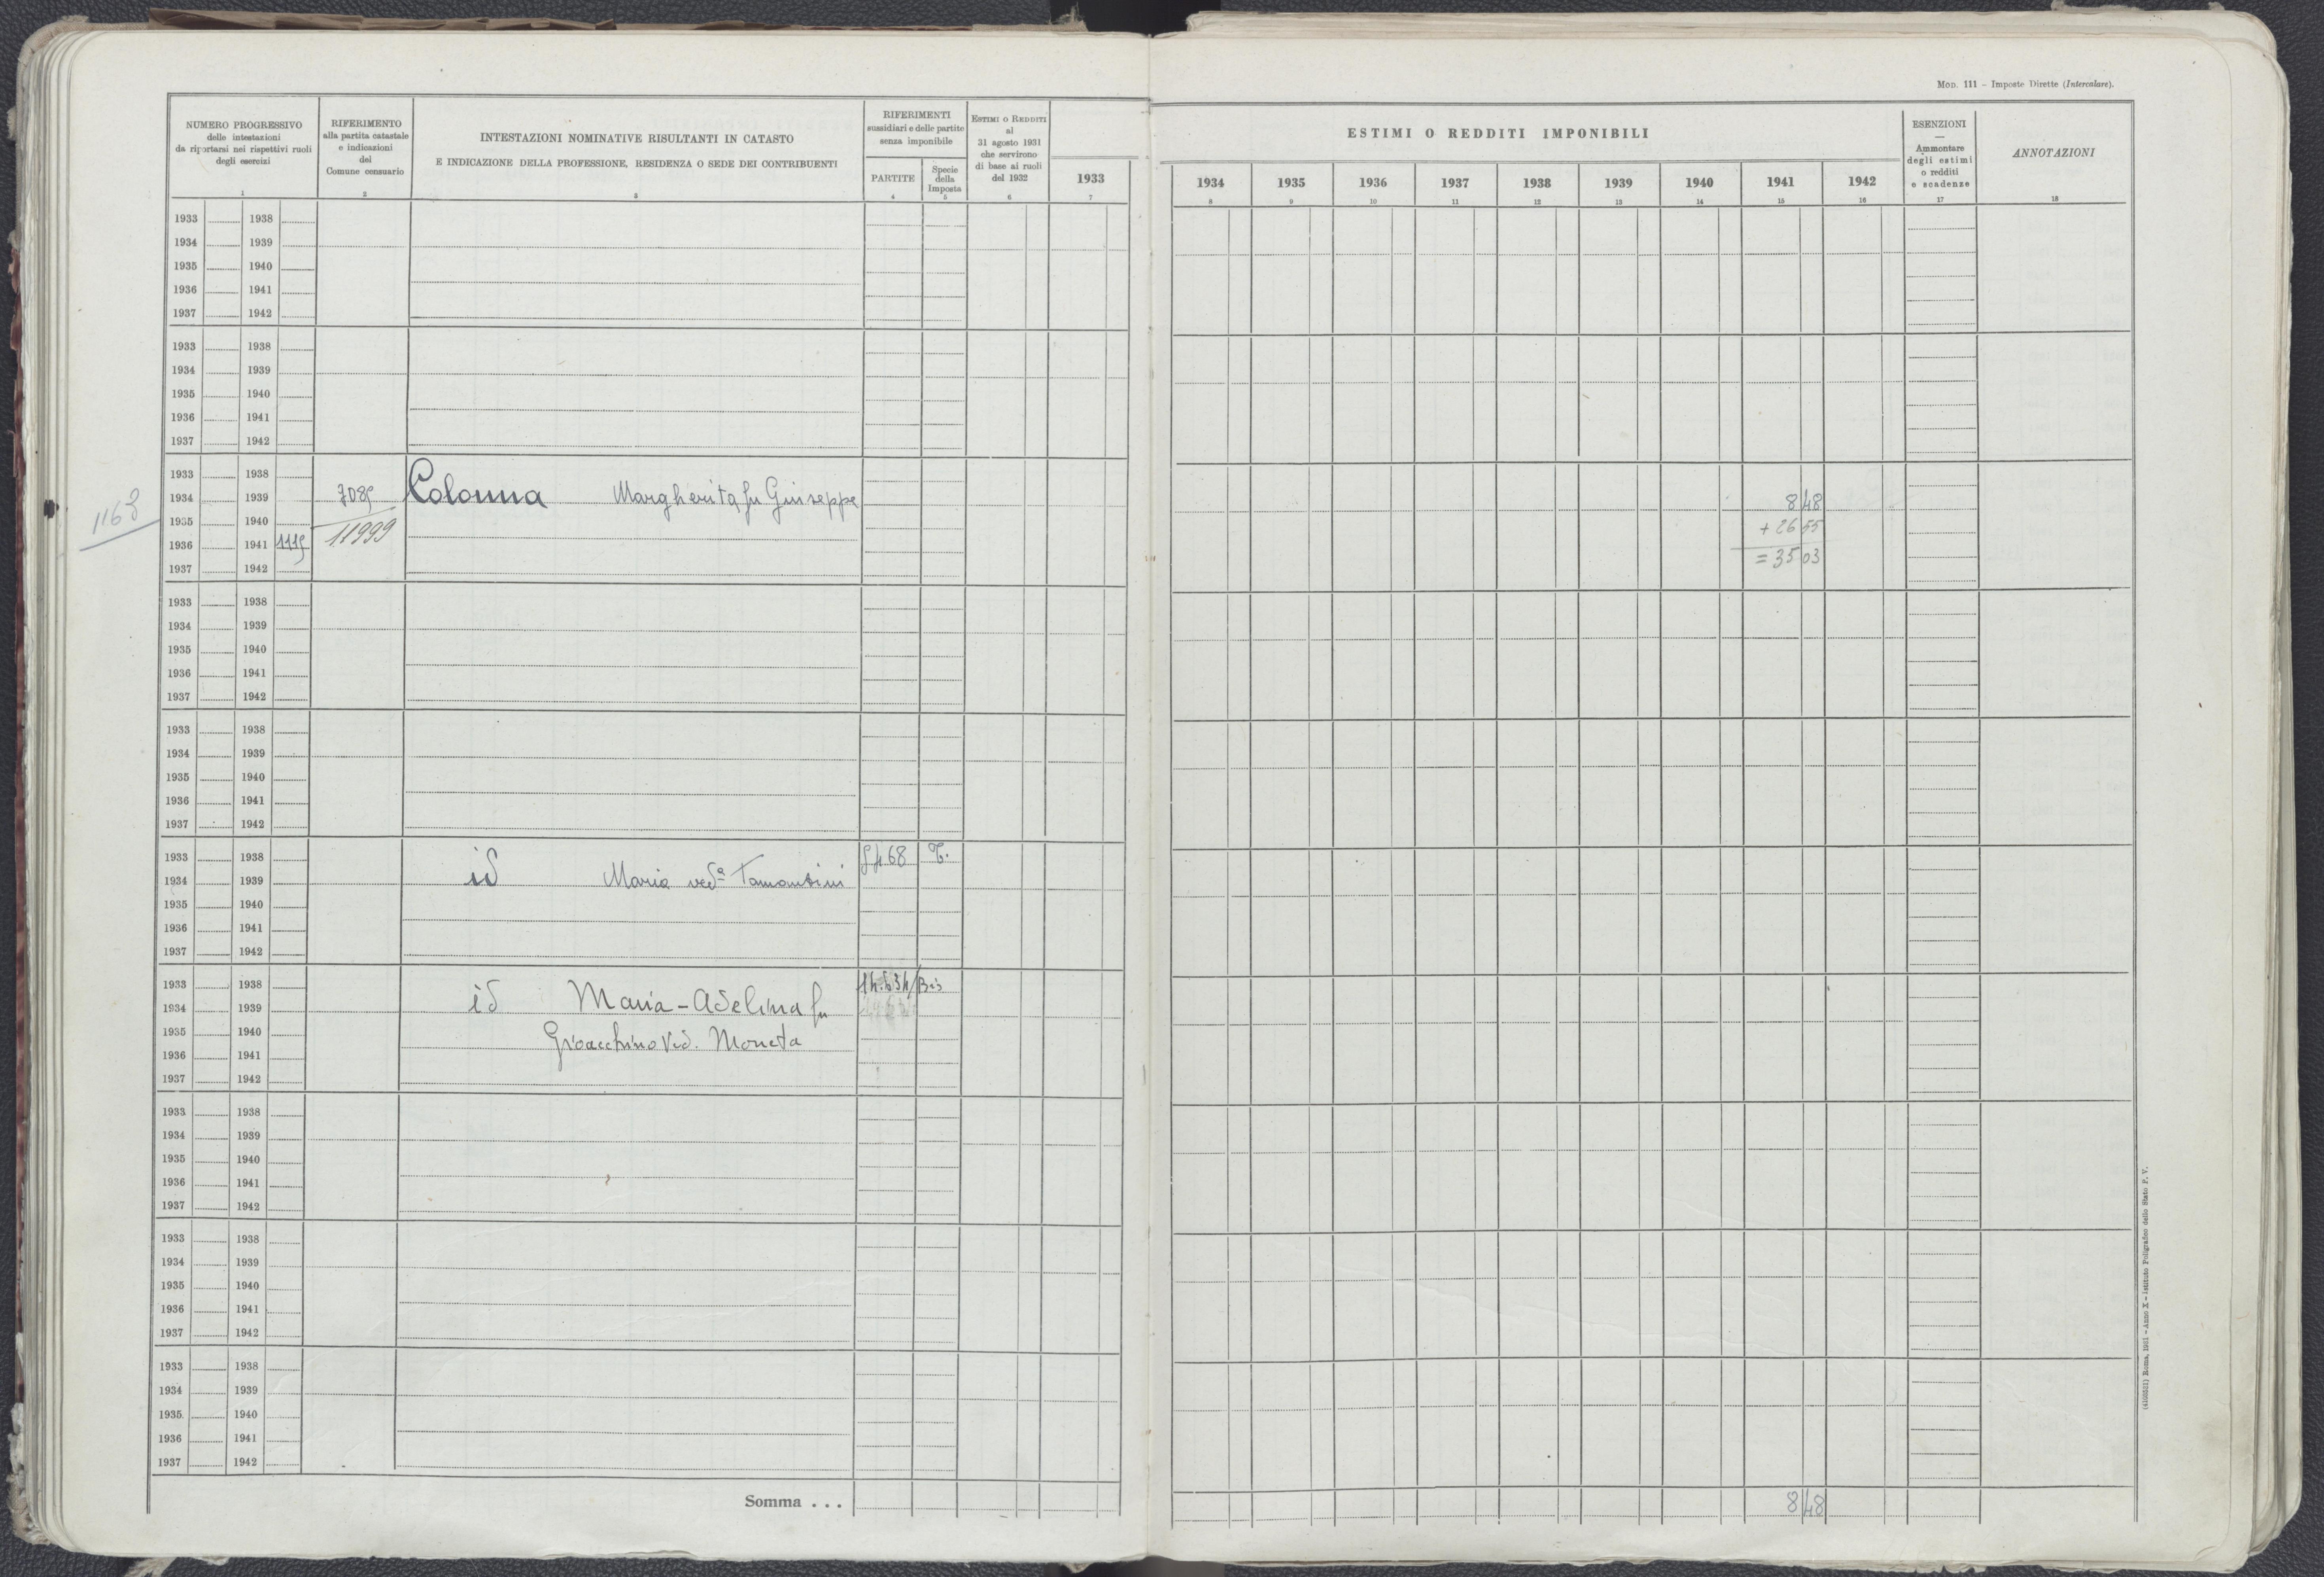 Mod. 111 – Imposte Dirette (Intercalare).
NUMERO PROGRESSIVO
delle intestazioni
da riportarsi nei rispettivi ruoli
degli esercizi
1
RIFERIMENTO
alla partita catastale
e indicazioni
del
Comune censuario
2
INTESTAZIONI NOMINATIVE RISULTANTI IN CATASTO
E INDICAZIONE DELLA PROFESSIONE, RESIDENZA O SEDE DEI CONTRIBUENTI
3
RIFERIMENTI
sussidiari e delle partite
senza imponibile
PARTITE
4
Specie
della
Imposta
5
Estimi o Redditi
al
31 agosto 1931
che servirono
di base ai ruoli
del 1932
6
1933
7
ESTIMI O REDDITI IMPONIBILI
1934 1935 1936 1937 1938 1939 1940 1941 1942
8 9 10 11 12 13 14 15 16
ESENZIONI
—
Ammontare
degli estimi
o redditi
e scadenze
17
ANNOTAZIONI
18
1933 1938
1934 1939
1935 1940
1936 1941
1937 1942
1933 1938
1934 1939
1935 1940
1936 1941
1937 1942
1163
1933 1938
1934 1939 Colonna Margherita fu Giuseppe 8 48
1935 1940 11999 + 26 55
1936 1941 1115 = 35 03
1937 1942
1933 1938
1934 1939
1935 1940
1936 1941
1937 1942
1933 1938
1934 1939
1935 1940
1936 1941
1937 1942
1933 1938 T.
1934 1939 id Maria ved.a Tamantini
1935 1940
1936 1941
1937 1942
1933 1938 Bis
1934 1939 id Maria-Adelina fu
1935 1940 Gioacchino Ved. Moneta
1936 1941
1937 1942
1933 1938
1934 1939
1935 1940
1936 1941
1937 1942
1933 1938
1934 1939
1935 1940
1936 1941
1937 1942
1933 1938
1934 1939
1935 1940
1936 1941
1937 1942
Somma . . . 8 48
(4100521) Roma, 1931 – Anno X – Istituto Poligrafico dello Stato P. V.